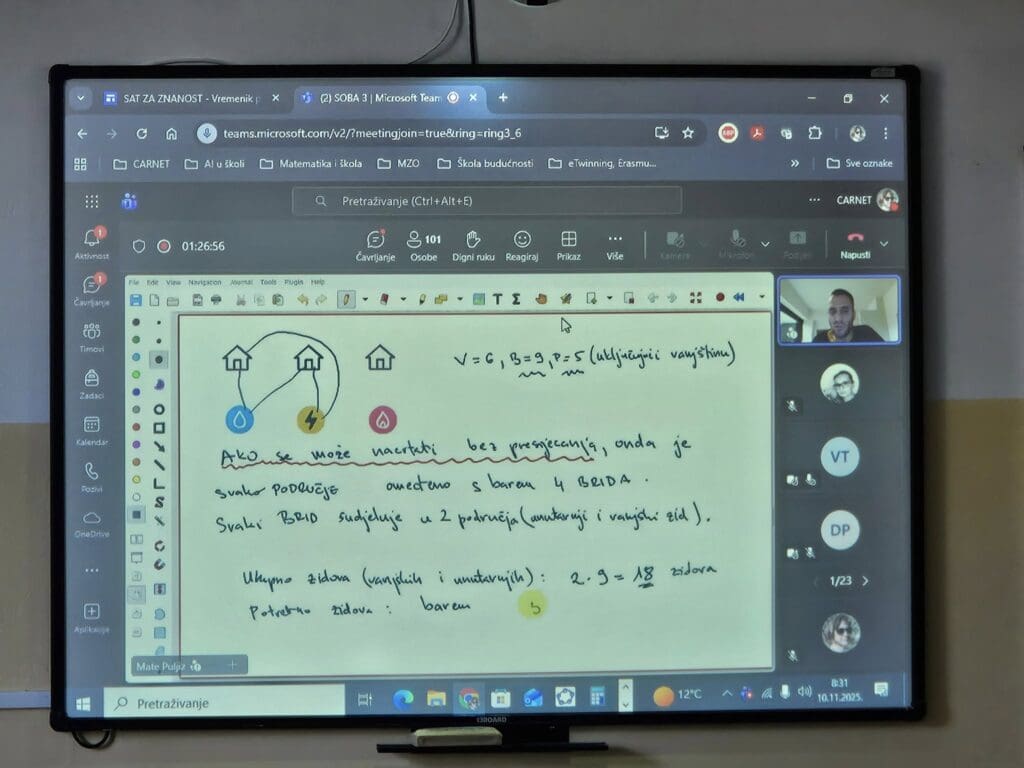 SAT ZA ZNANOST - Vremenik
(2) SOBA 3 | Microsoft Team
teams.microsoft.com/v2/?meetingjoin=true&ring=ring3_6
CARNET
AI u školi
Matematika i škola
MZO
Škola budućnosti
eTwinning, Erasmu...
Sve oznake
Pretraživanje (Ctrl+Alt+E)
CARNET
01:26:56
101
Čavrljanje
Osobe
Digni ruku
Reagiraj
Prikaz
Više
Kamera
Mikrofon
Podijeli
Napusti
Aktivnost
Čavrljanje
Timovi
Zadaci
Kalendar
Pozivi
OneDrive
Aplikacije
File Edit View Navigation Journal Tools Plugin Help
V = 6, B = 9, P = 5 (uključujući vanjštinu)
AKO se može nacrtati bez presjecanja, onda je
svako PODRUČJE omeđeno s barem 4 BRIDA.
Svaki BRID sudjeluje u 2 područja (unutarnji i vanjski zid).
Ukupno zidova (vanjskih i unutarnjih): 2 · 9 = 18 zidova
Potrebno zidova: barem 5
Mate Puljiz
VT
DP
1/23
Pretraživanje
12°C
8:31
10.11.2025.